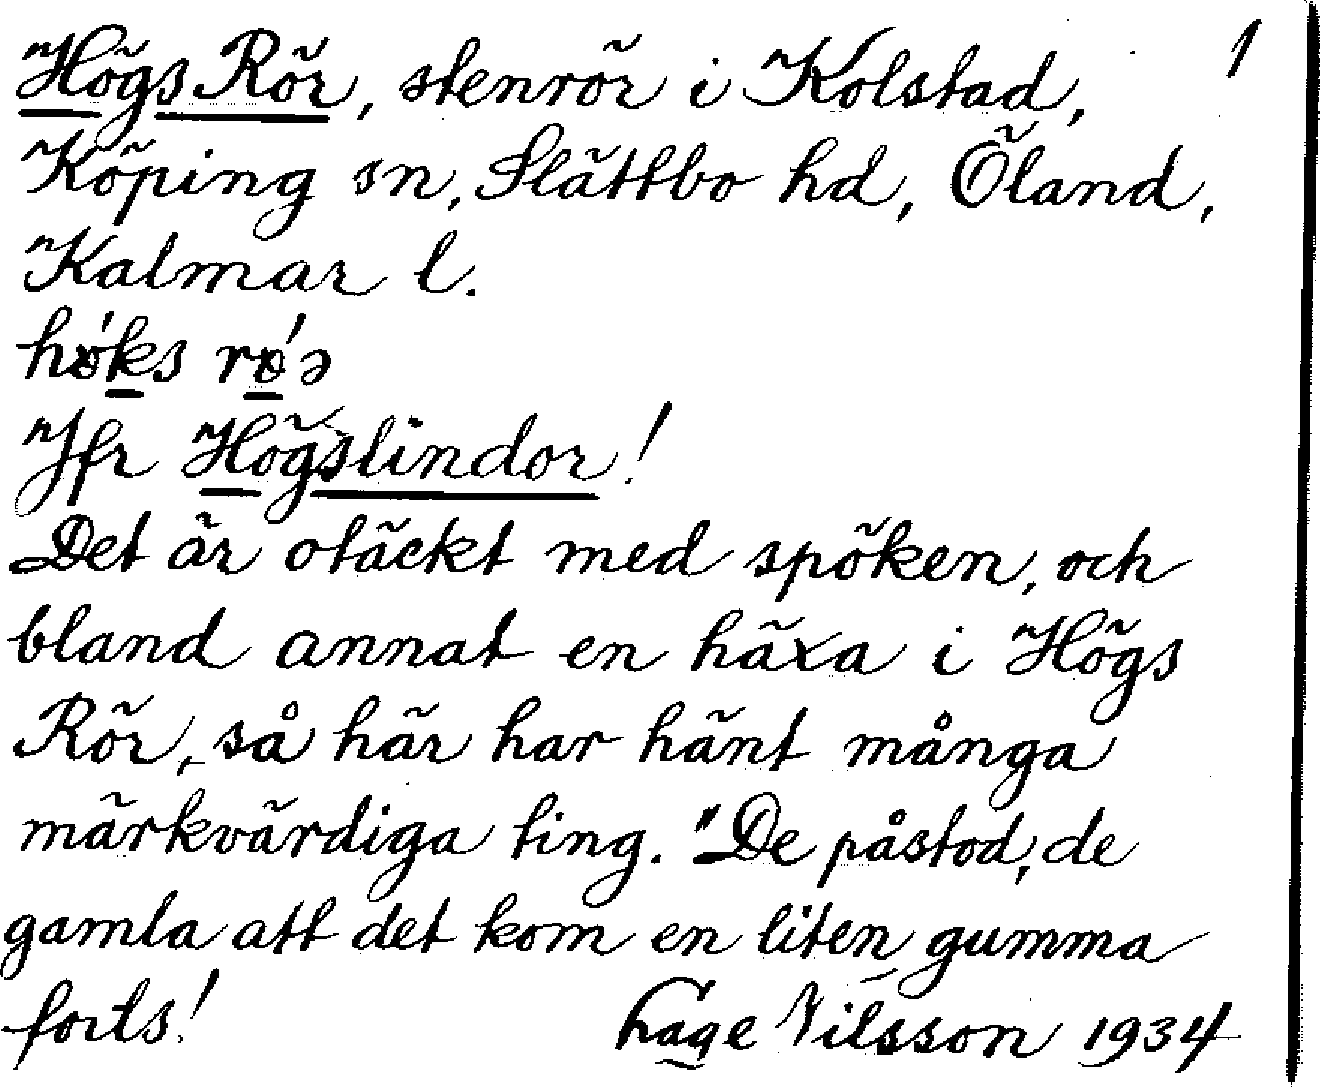 Högs Rör, stenrör i Kolstad, 1
Köping sn, Slättbo hd, Öland,
Kalmar l.
hǿks rǿə
Jfr Högslindor!
Det är otäckt med spöken, och
bland annat en häxa i Högs
Rör, så här har hänt många
märkvärdiga ting. "De påstod, de
gamla att det kom en liten gumma
forts! Lage Nilsson 1934